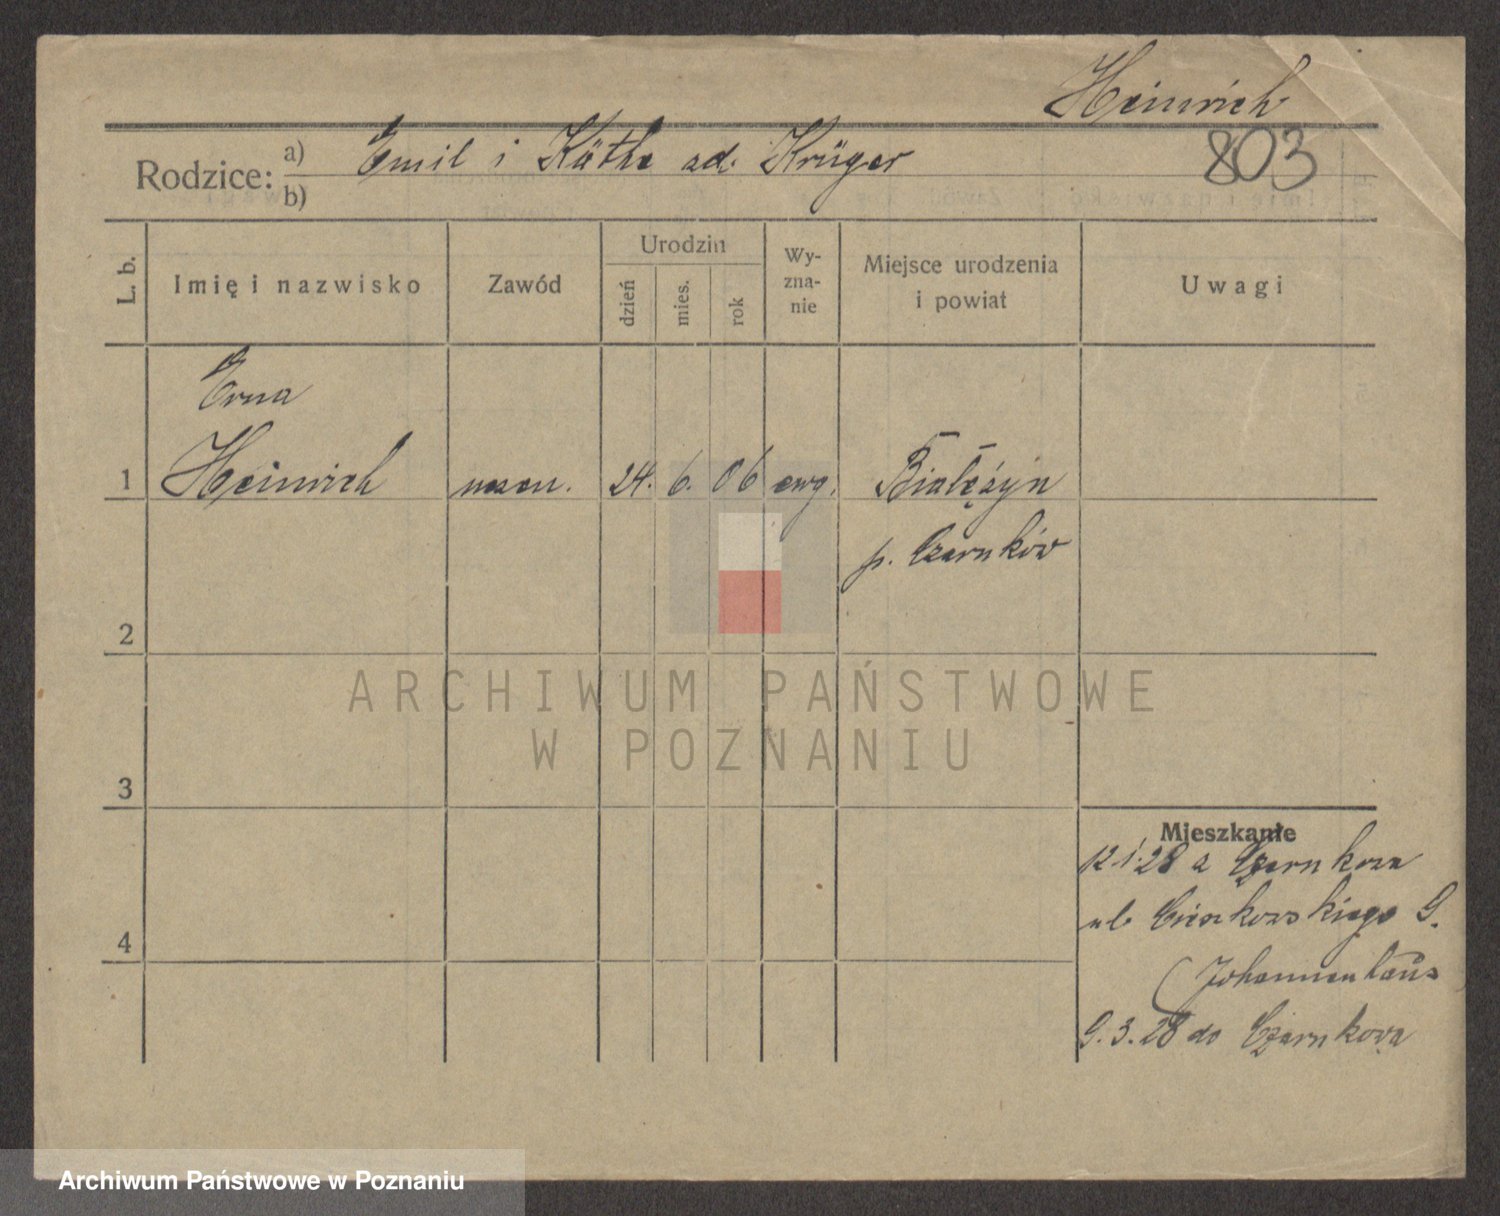 Heinrich
803
Rodzice: a) Emil i Käthe ad. Krüger
b)
L. b.
Imię i nazwisko
Zawód
Urodzin
dzień
mies.
rok
Wy-
zna-
nie
Miejsce urodzenia
i powiat
Uwagi
Erna
1 Heinrich 24. 6. 06 ewg. Białężyn
p. Czarnków
2
3
4
Mieszkanie
12.1.28 z Czarnkowa
ul. Cieszkowskiego 9.
(Johannenhaus
9.3.28 do Czarnkowa
ARCHIWUM PAŃSTWOWE
W POZNANIU
Archiwum Państwowe w Poznaniu